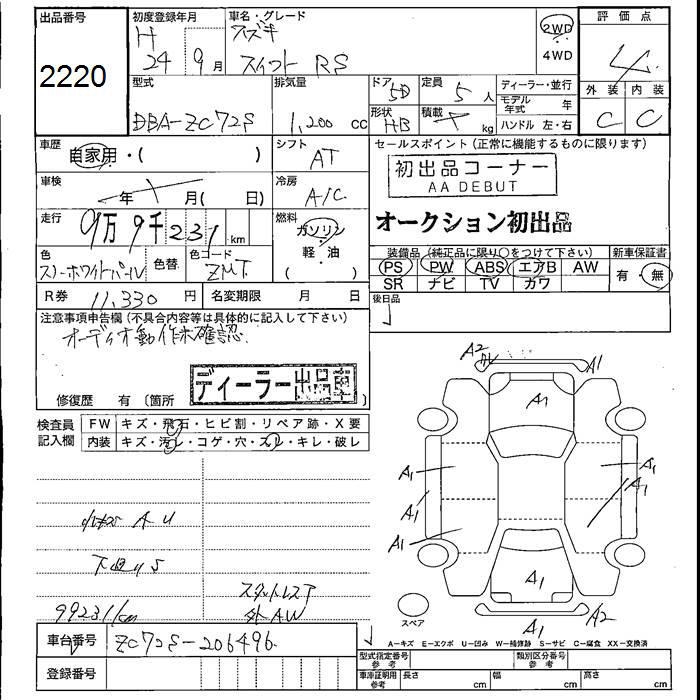 出品番号
2220
初度登録年月
H 24 9月
車名・グレード
スズキ
スイフト RS
2WD
4WD
評価点
4
外装 内装
C C
型式
DBA-ZC72S
排気量
1,200 cc
ドア 5D
形状 HB
定員 5人
積載 kg
ディーラー・並行
モデル年式 年
ハンドル 左・右
車歴
自家用・( )
シフト
AT
車検
年 月( 日)
冷房
A/C
走行
9万9千231 km
燃料
ガソリン
軽・油
色
スノーホワイトパール
色替
色コード
ZMT
R券 11,330 円
名変期限 月 日
セールスポイント(正常に機能するものに限ります)
初出品コーナー
AA DEBUT
オークション初出品
装備品(純正品に限り○をつけて下さい)
PS PW ABS エアB AW
SR ナビ TV カワ
新車保証書
有・無
後日品
注意事項申告欄(不具合内容等は具体的に記入して下さい)
オーディオ動作未確認
ディーラー出品車
修復歴 有〔箇所 〕
検査員記入欄
FW キズ・飛石・ヒビ割・リペア跡・X要
内装 キズ・汚レ・コゲ・穴・スレ・キレ・破レ
小キズ A U
下回りS
スタットレスT
外AW
99231km
車台番号 ZC72S-206496
登録番号
A2
A1
A1
A1
A1
A1
A1
A1
A1
A1
A2
スペア
A-キズ E-エクボ U-凹み W-補修跡 S-サビ C-腐食 XX-交換済
型式指定番号 参考
類別区分番号 参考
車庫証明用 参考 長さ cm 幅 cm 高さ cm